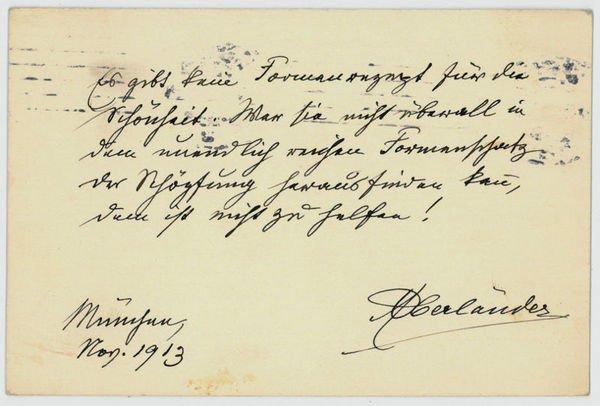 Es gibt kein Formenrezept für die
Schönheit. Wer sie nicht überall in
dem unendlich reichen Formenschatz
der Schöpfung herausfinden kann,
dem ist nicht zu helfen!
München,
Nov. 1913
AOberländer